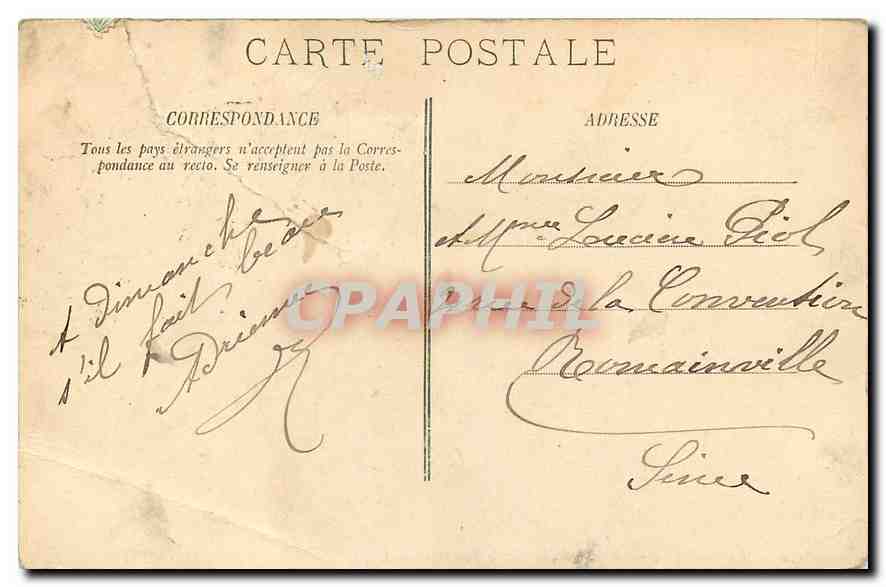 CARTE POSTALE
CORRESPONDANCE
Tous les pays étrangers n'acceptent pas la Corres-
pondance au recto. Se renseigner à la Poste.
A dimanche
s'il fait beau
Adrienne
ADRESSE
Monsieur
& Mme Lucien Piol
rue de la Convention
Romainville
Seine
CPAPHIL